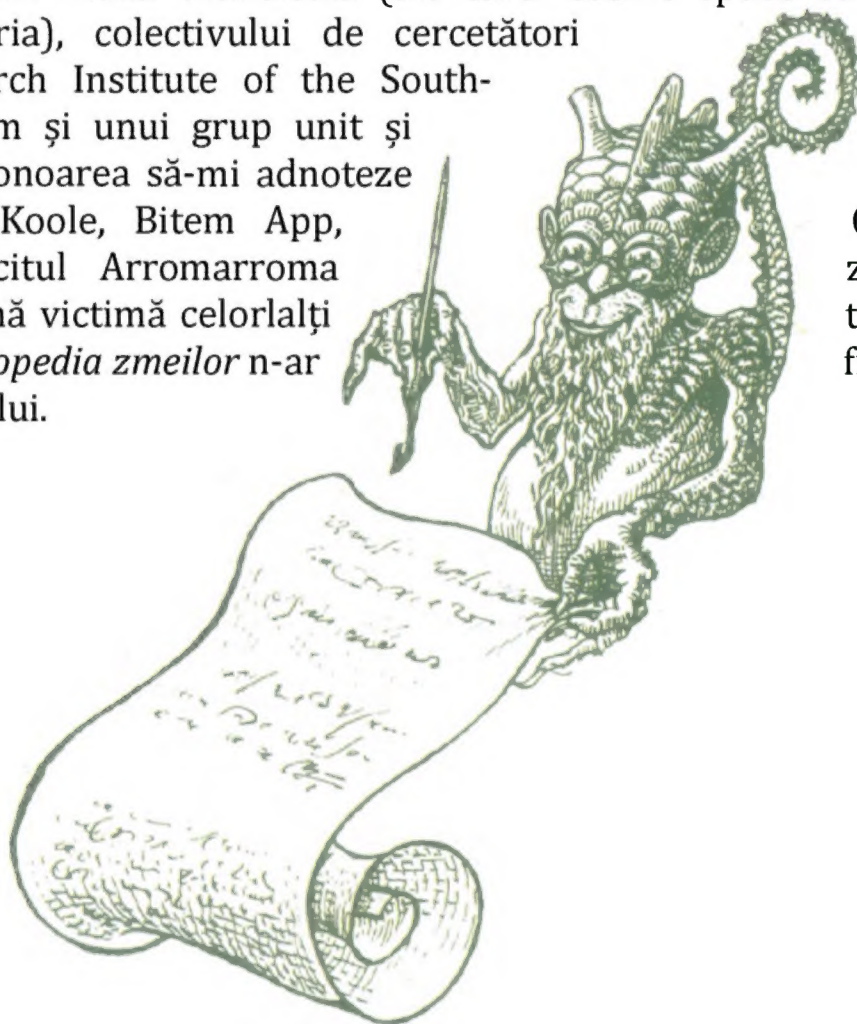 ria), colectivului de cercetători
rch Institute of the South-
m și unui grup unit și
onoarea să-mi adnoteze
Koole, Bitem App,
citul Arromarroma
nă victimă celorlalți
opedia zmeilor n-ar
lui.
z
t